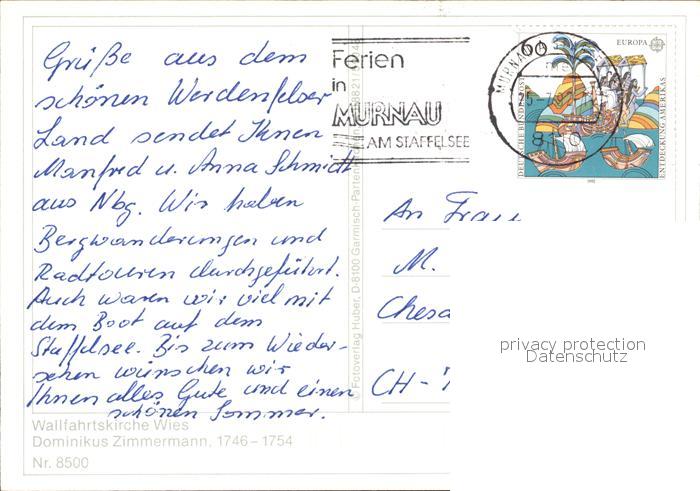 Grüße aus dem
schönen Werdenfelser
Land sendet Ihnen
Manfred u. Anna Schmidt
aus Nbg. Wir haben
Bergwanderungen und
Radtouren durchgeführt.
Auch waren wir viel mit
dem Boot auf dem
Staffelsee. Bis zum Wieder-
sehen wünschen wir
Ihnen alles Gute und einen
schönen Sommer.
Wallfahrtskirche Wies
Dominikus Zimmermann, 1746 – 1754
Nr. 8500
© Fotoverlag Huber, D-8100 Garmisch-Parten
Ferien
in
MURNAU
AM STAFFELSEE
MURNAU
EUROPA
DEUTSCHE BUNDESPOST
ENTDECKUNG AMERIKAS
1992
An Frau
M.
Chesa
CH -
privacy protection
Datenschutz